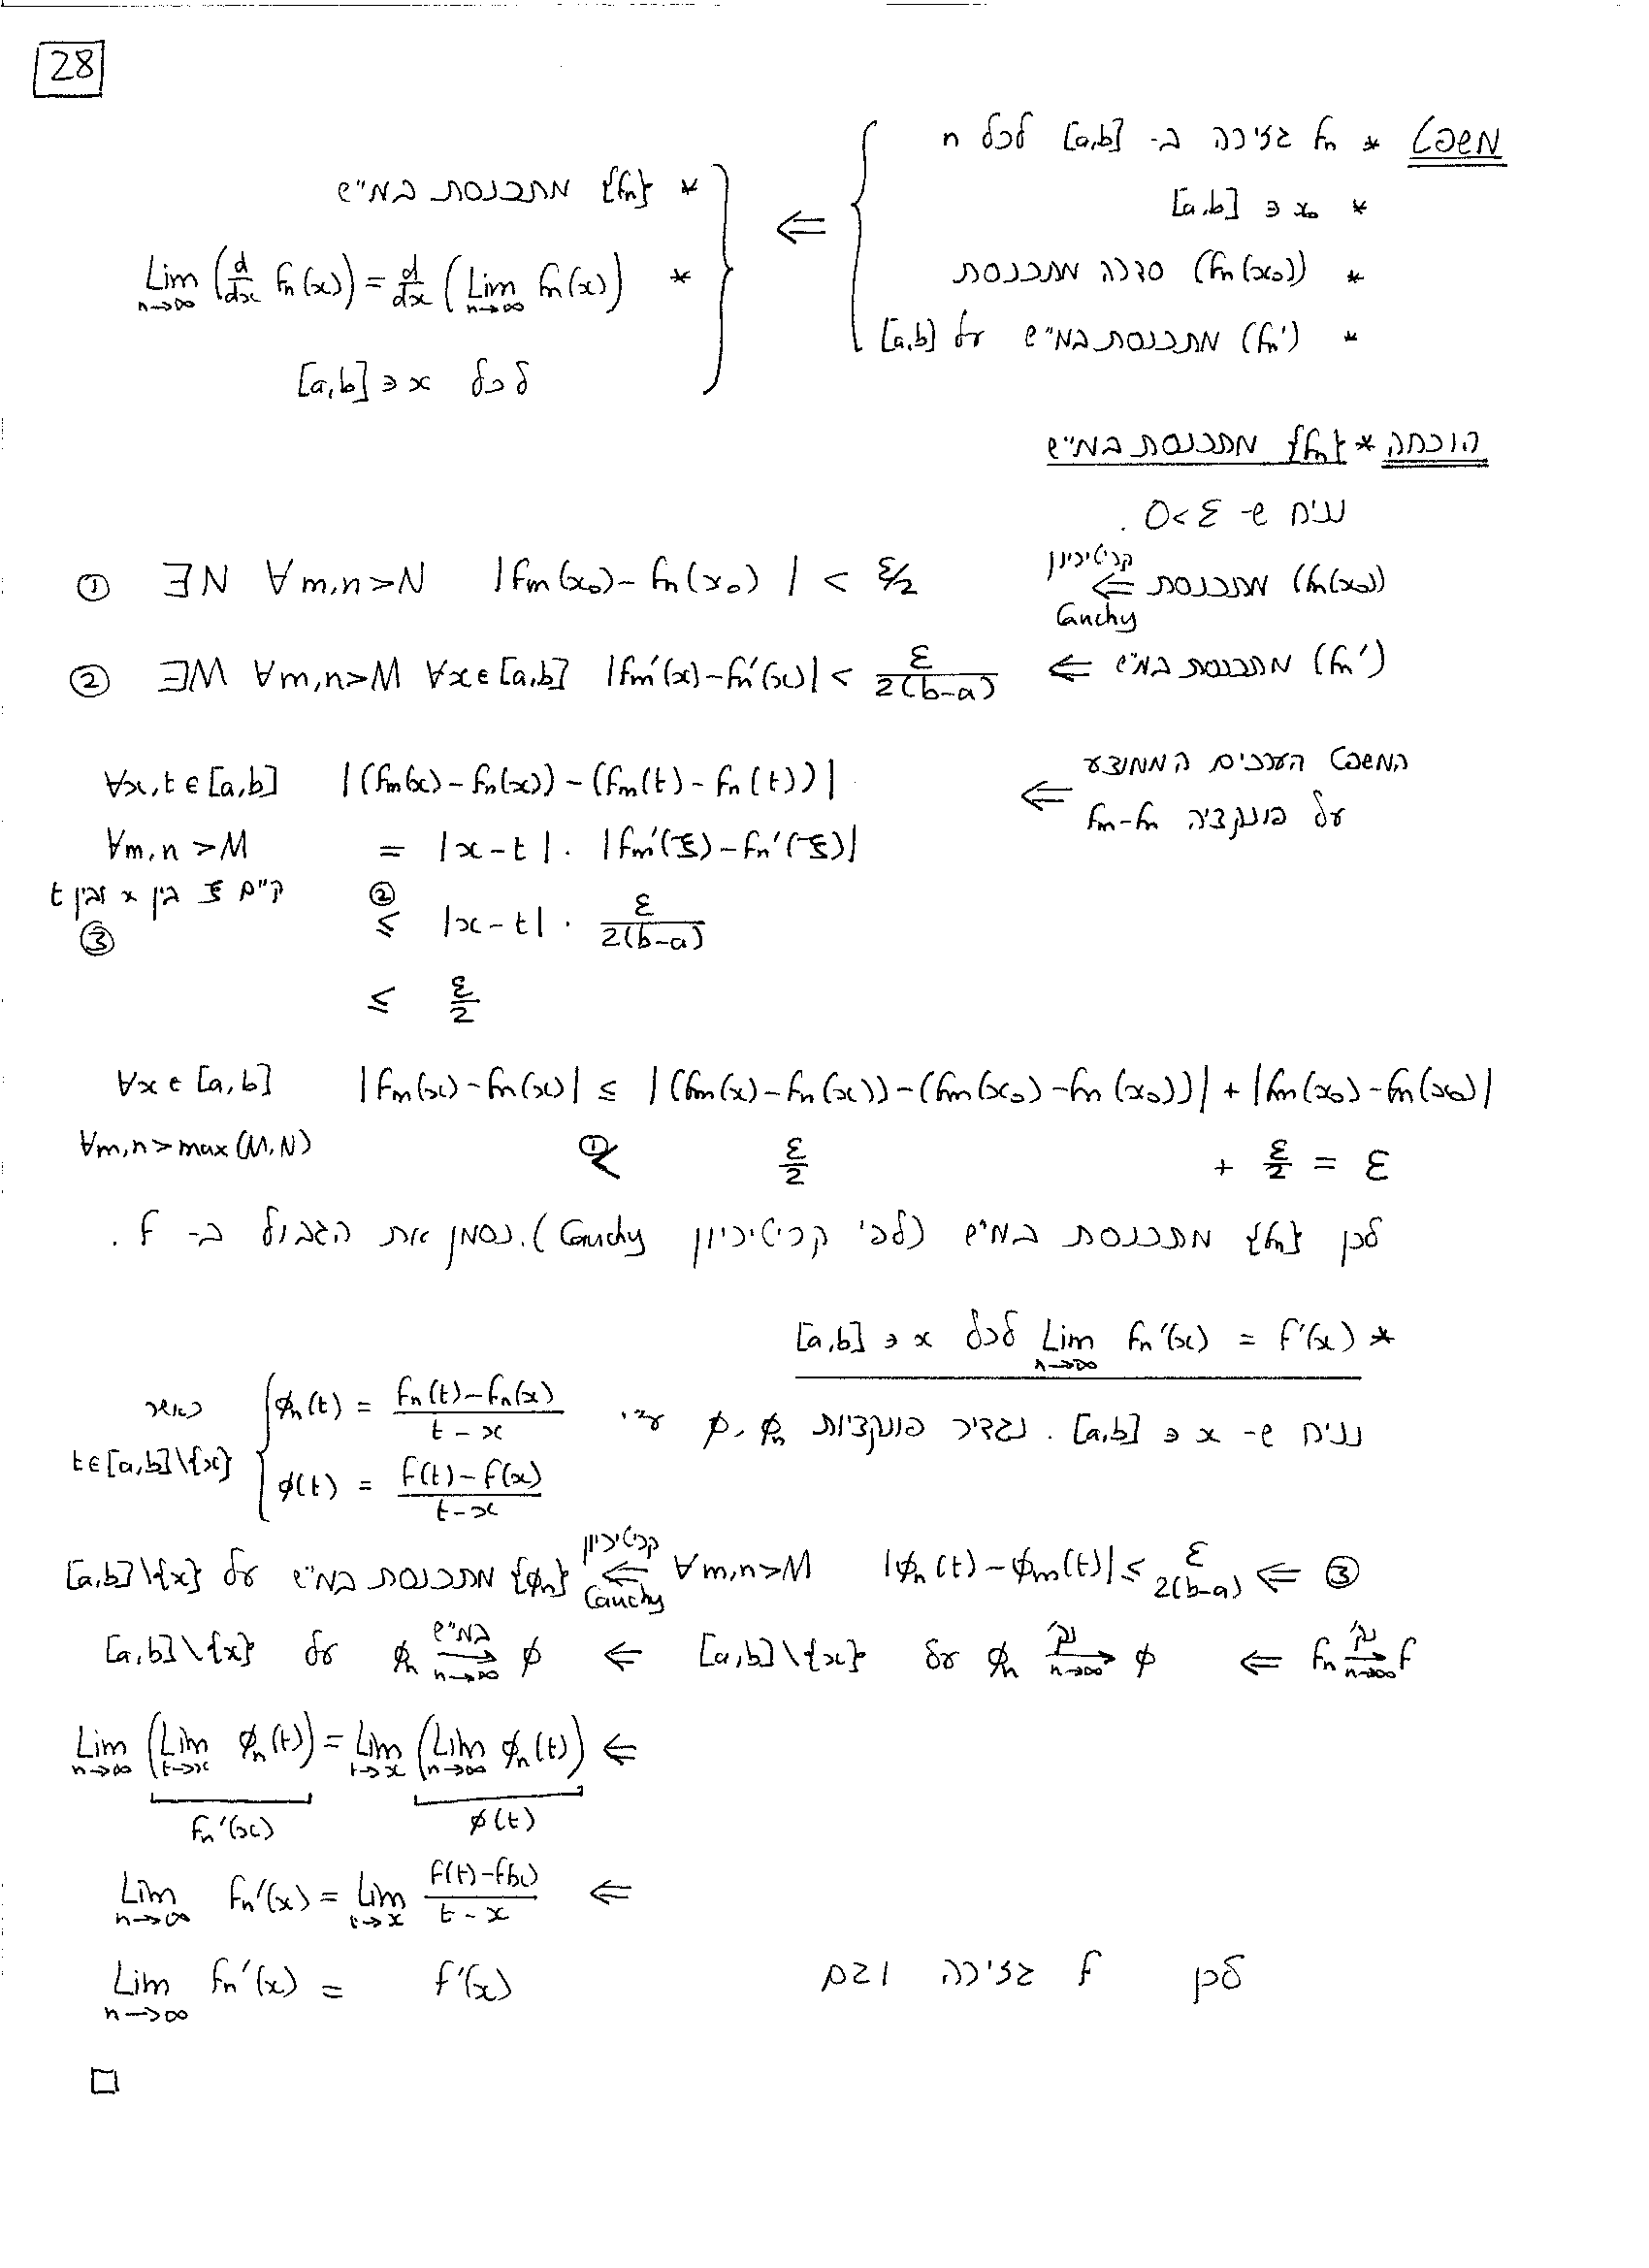 28
משפט * fn גזירה ב- [a,b] לכל n
* x₀ ∈ [a,b]
* (fn(x₀)) סדרה מתכנסת
* (fn') מתכנסת במ"ש על [a,b]
⇐
* {fn} מתכנסת במ"ש
* Lim n→∞ (d/dx fn(x)) = d/dx (Lim n→∞ fn(x))
לכל x ∈ [a,b]
הוכחה * {fn} מתכנסת במ"ש
נניח ש- ε > 0.
(fn(x₀)) מתכנסת ⇐ קריטיריון Cauchy ① ∃N ∀m,n>N |fm(x₀)-fn(x₀)| < ε/2
(fn') מתכנסת במ"ש ⇐ ② ∃M ∀m,n>M ∀x∈[a,b] |fm'(x)-fn'(x)| < ε/2(b-a)
המשפט הערכים הממוצע
על פונקציה fm-fn ⇐
∀x,t∈[a,b] |(fm(x)-fn(x))-(fm(t)-fn(t))|
∀m,n>M = |x-t|·|fm'(ξ)-fn'(ξ)|
קיים ξ בין x ובין t
③ ②≤ |x-t|· ε/2(b-a)
≤ ε/2
∀x∈[a,b] |fm(x)-fn(x)| ≤ |(fm(x)-fn(x))-(fm(x₀)-fn(x₀))| + |fm(x₀)-fn(x₀)|
∀m,n>max(M,N) ①< ε/2 + ε/2 = ε
לכן {fn} מתכנסת במ"ש (לפי קריטיריון Cauchy). נסמן את הגבול ב- f.
* Lim n→∞ fn'(x) = f'(x) לכל x ∈ [a,b]
נניח ש- x ∈ [a,b]. נגדיר פונקציות φn, φ ע"י
φn(t) = fn(t)-fn(x) / t-x
φ(t) = f(t)-f(x) / t-x
כאשר
t∈[a,b]\{x}
③ ⇒ |φn(t)-φm(t)| ≤ ε/2(b-a) ∀m,n>M ⇐ קריטיריון Cauchy {φn} מתכנסת במ"ש על [a,b]\{x}
fn →נק' n→∞ f ⇐ φn →נק' n→∞ φ על [a,b]\{x} ⇐ φn →במ"ש n→∞ φ על [a,b]\{x}
⇐ Lim n→∞ (Lim t→x φn(t)) = Lim t→x (Lim n→∞ φn(t))
fn'(x) φ(t)
⇐ Lim n→∞ fn'(x) = Lim t→x f(t)-f(x) / t-x
לכן f גזירה וגם Lim n→∞ fn'(x) = f'(x)
□